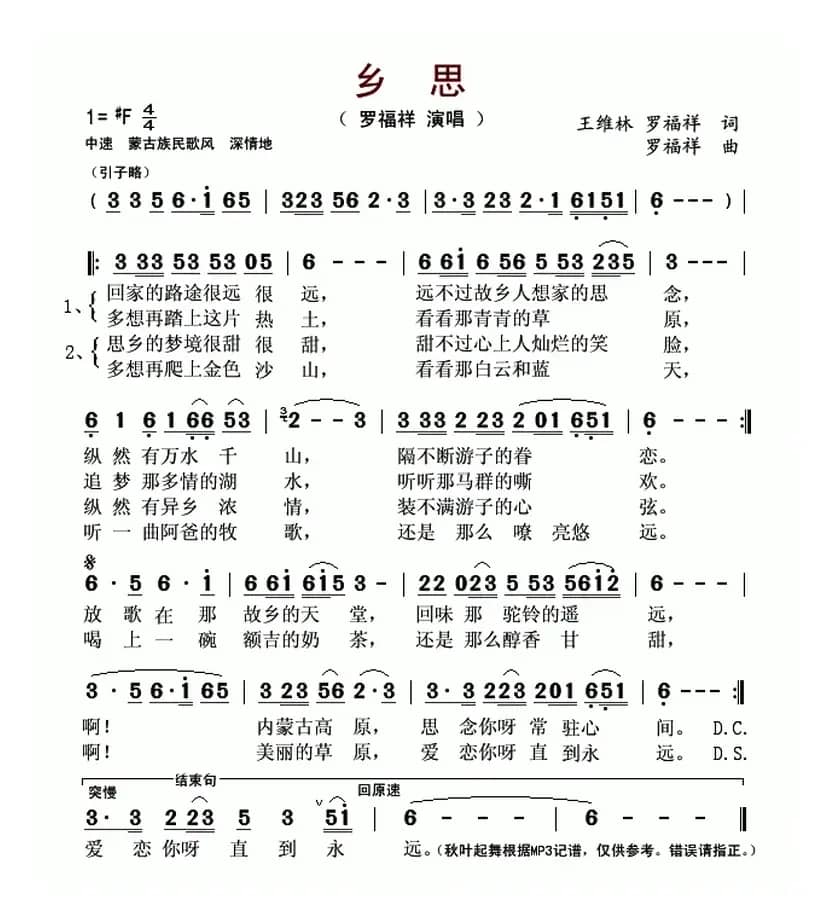 乡 思
1= #F 4/4
( 罗福祥 演唱 )
王维林 罗福祥 词
罗福祥 曲
中速 蒙古族民歌风 深情地
(引子略)
( 3 3 5 6·i 65 | 323 56 2·3 | 3·3 23 2·1 6151 | 6 - - - ) |
|: 3 33 53 53 05 | 6 - - - | 6 6i 6 56 5 53 235 | 3 - - - |
1、 回家的路途很远 很 远, 远不过故乡人想家的思 念,
多想再踏上这片 热 土, 看看那青青的草 原,
2、 思乡的梦境很甜 很 甜, 甜不过心上人灿烂的笑 脸,
多想再爬上金色 沙 山, 看看那白云和蓝 天,
6 1 6 1 66 53 | 3 2 - - 3 | 3 33 2 23 2 01 651 | 6 - - - :|
纵 然 有万水 千 山, 隔不断游子的眷 恋。
追 梦 那多情的湖 水, 听听那马群的嘶 欢。
纵 然 有异乡 浓 情, 装不满游子的心 弦。
听 一 曲阿爸的牧 歌, 还是 那么 嘹 亮悠 远。
6 · 5 6 · i | 6 6i 6i5 3 - | 22 023 5 53 561̇2̇ | 6 - - - |
放 歌 在 那 故乡的天 堂, 回味 那 驼铃的遥 远,
喝 上 一 碗 额吉的奶 茶, 还是 那么醇香 甘 甜,
3 · 5 6·i 65 | 3 23 56 2·3 | 3·3 223 201 651 | 6 - - - :|
啊! 内蒙古高 原, 思 念你呀 常 驻心 间。 D.C.
啊! 美丽的草 原, 爱 恋你呀 直 到永 远。 D.S.
突慢 结束句 回原速
3· 3 2 23 5 3 V 5i | 6 - - - | 6 - - - ‖
爱 恋 你呀 直 到 永 远。(秋叶起舞根据MP3记谱,仅供参考。错误请指正。)